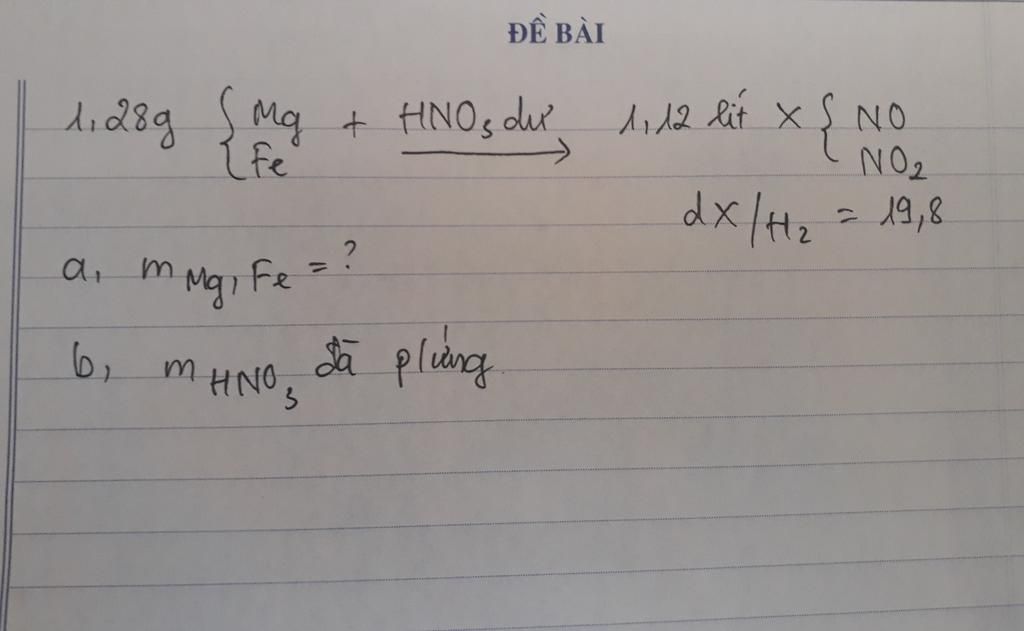 ĐỀ BÀI
1,28g { Mg + HNO3 dư → 1,12 lít X { NO
Fe NO2
dX/H2 = 19,8
a, m Mg, Fe = ?
b, m HNO3 đã p/ứng